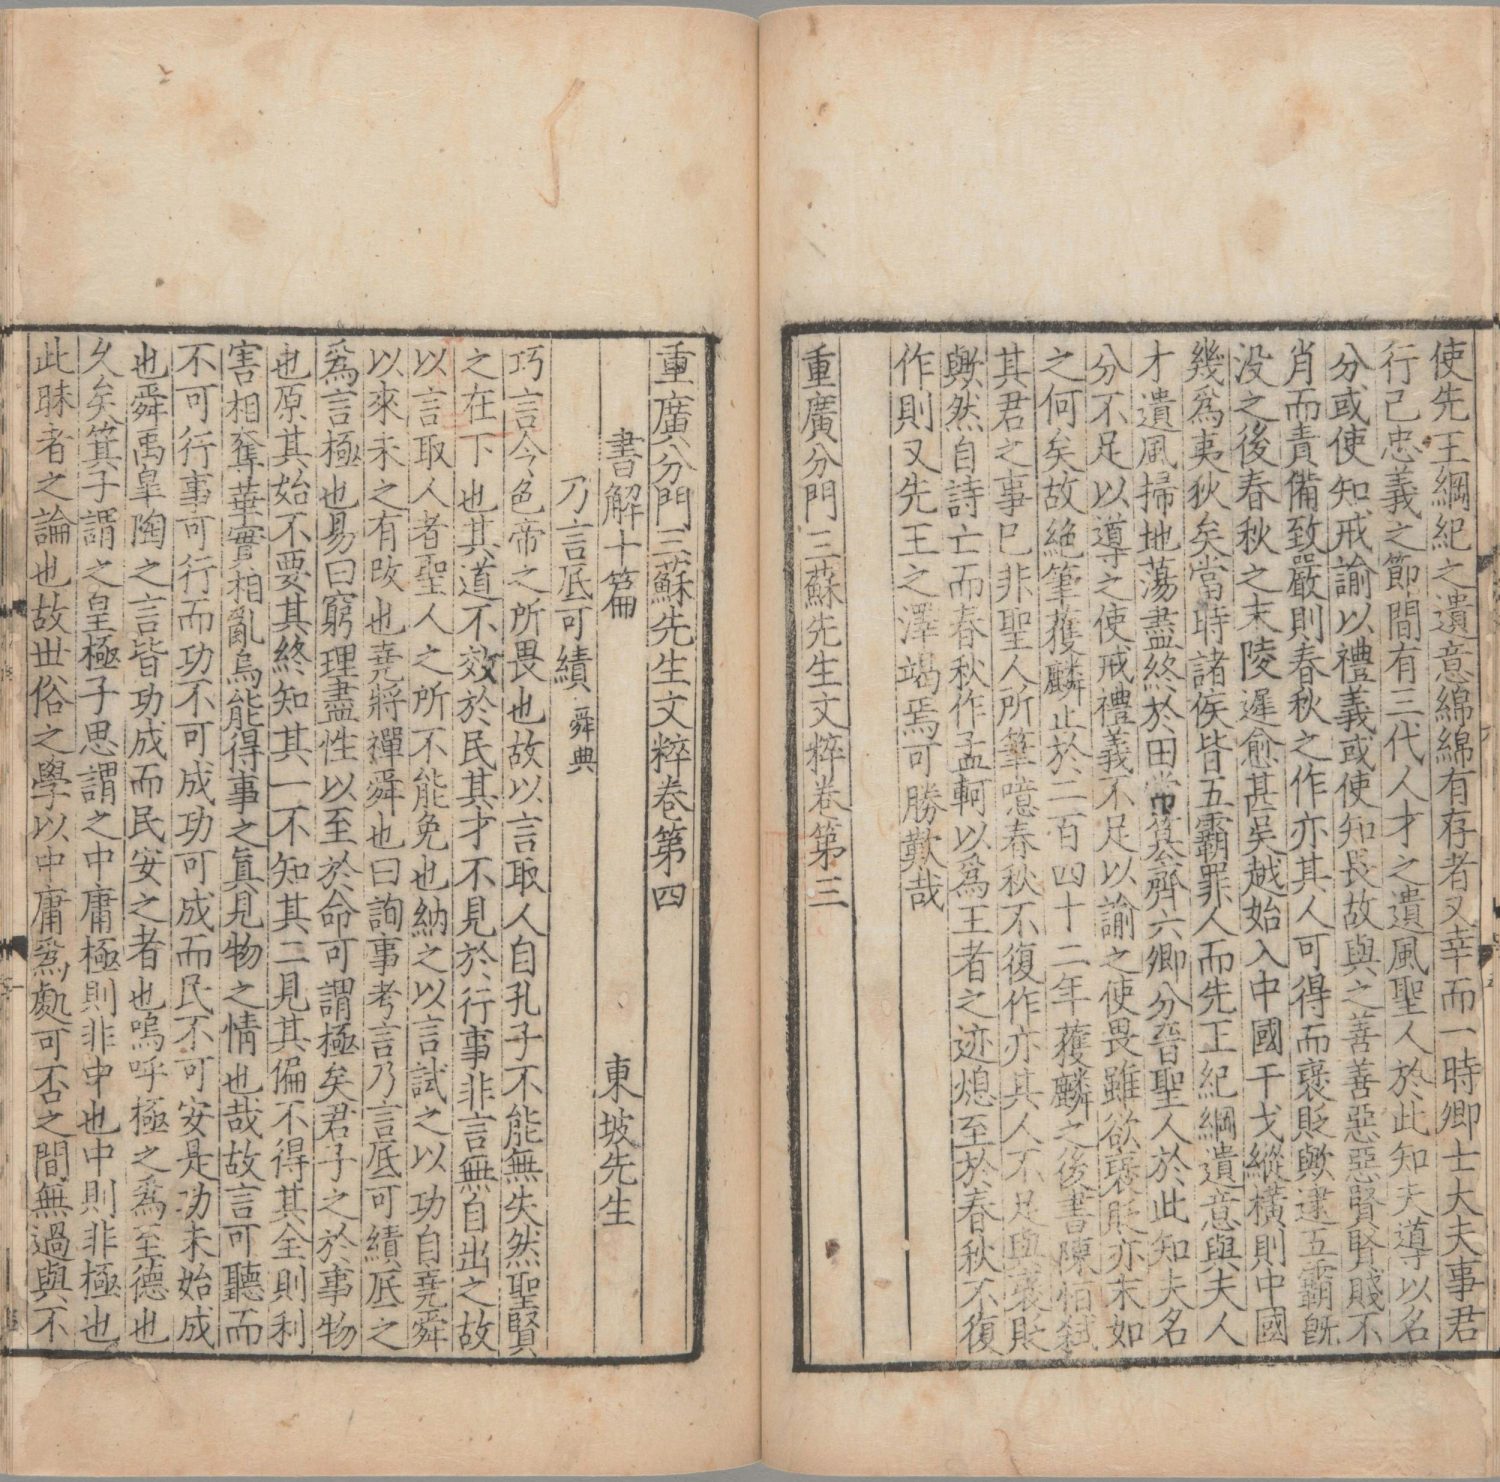 使先王綱紀之遺意綿綿有存者又幸而一時卿士大夫事君
行己忠義之節間有三代人才之遺風聖人於此知夫導以名
分或使知戒諭以禮義或使知長故與之善善惡惡賢賢賤不
肖而責備致嚴則春秋之作亦其人可得而褒貶歟逮五霸旣
没之後春秋之末陵遲愈甚吴越始入中國干戈縱横則中國
幾爲夷狄矣當時諸侯皆五霸罪人而先王紀綱遺意與夫人
才遺風掃地蕩盡終於田常簒齊六卿分晉聖人於此知夫名
分不足以導之使戒禮義不足以諭之使畏雖欲褒貶亦末如
之何矣故絶筆獲麟止於二百四十二年獲麟之後書陳恒弑
其君之事已非聖人所筆噫春秋不復作亦其人不足與褒貶
歟然自詩亡而春秋作孟軻以爲王者之迹熄至於春秋不復
作則又先王之澤竭焉可勝歎哉
重廣分門三蘇先生文粹卷第三
重廣分門三蘇先生文粹卷第四
書解十篇 東坡先生
乃言底可績 舜典
巧言令色帝之所畏也故以言取人自孔子不能無失然聖賢
之在下也其道不效於民其才不見於行事非言無自出之故
以言取人者聖人之所不能免也納之以言試之以功自堯舜
以來未之有改也堯將禪舜也曰詢事考言乃言底可績底之
爲言極也易曰窮理盡性以至於命可謂極矣君子之於事物
也原其始不要其終知其一不知其二見其偏不得其全則利
害相奪華實相亂烏能得事之真見物之情也哉故言可聽而
不可行事可行而功不可成功可成而民不可安是功未始成
也舜禹皐陶之言皆功成而民安之者也嗚呼極之爲至德也
久矣箕子謂之皇極子思謂之中庸極則非中也中則非極也
此昧者之論也故世俗之學以中庸爲處可否之間無過與不